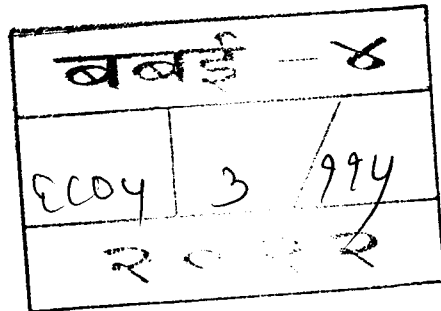 बबई - ४
६८०५ ३ / ११५
२०१२